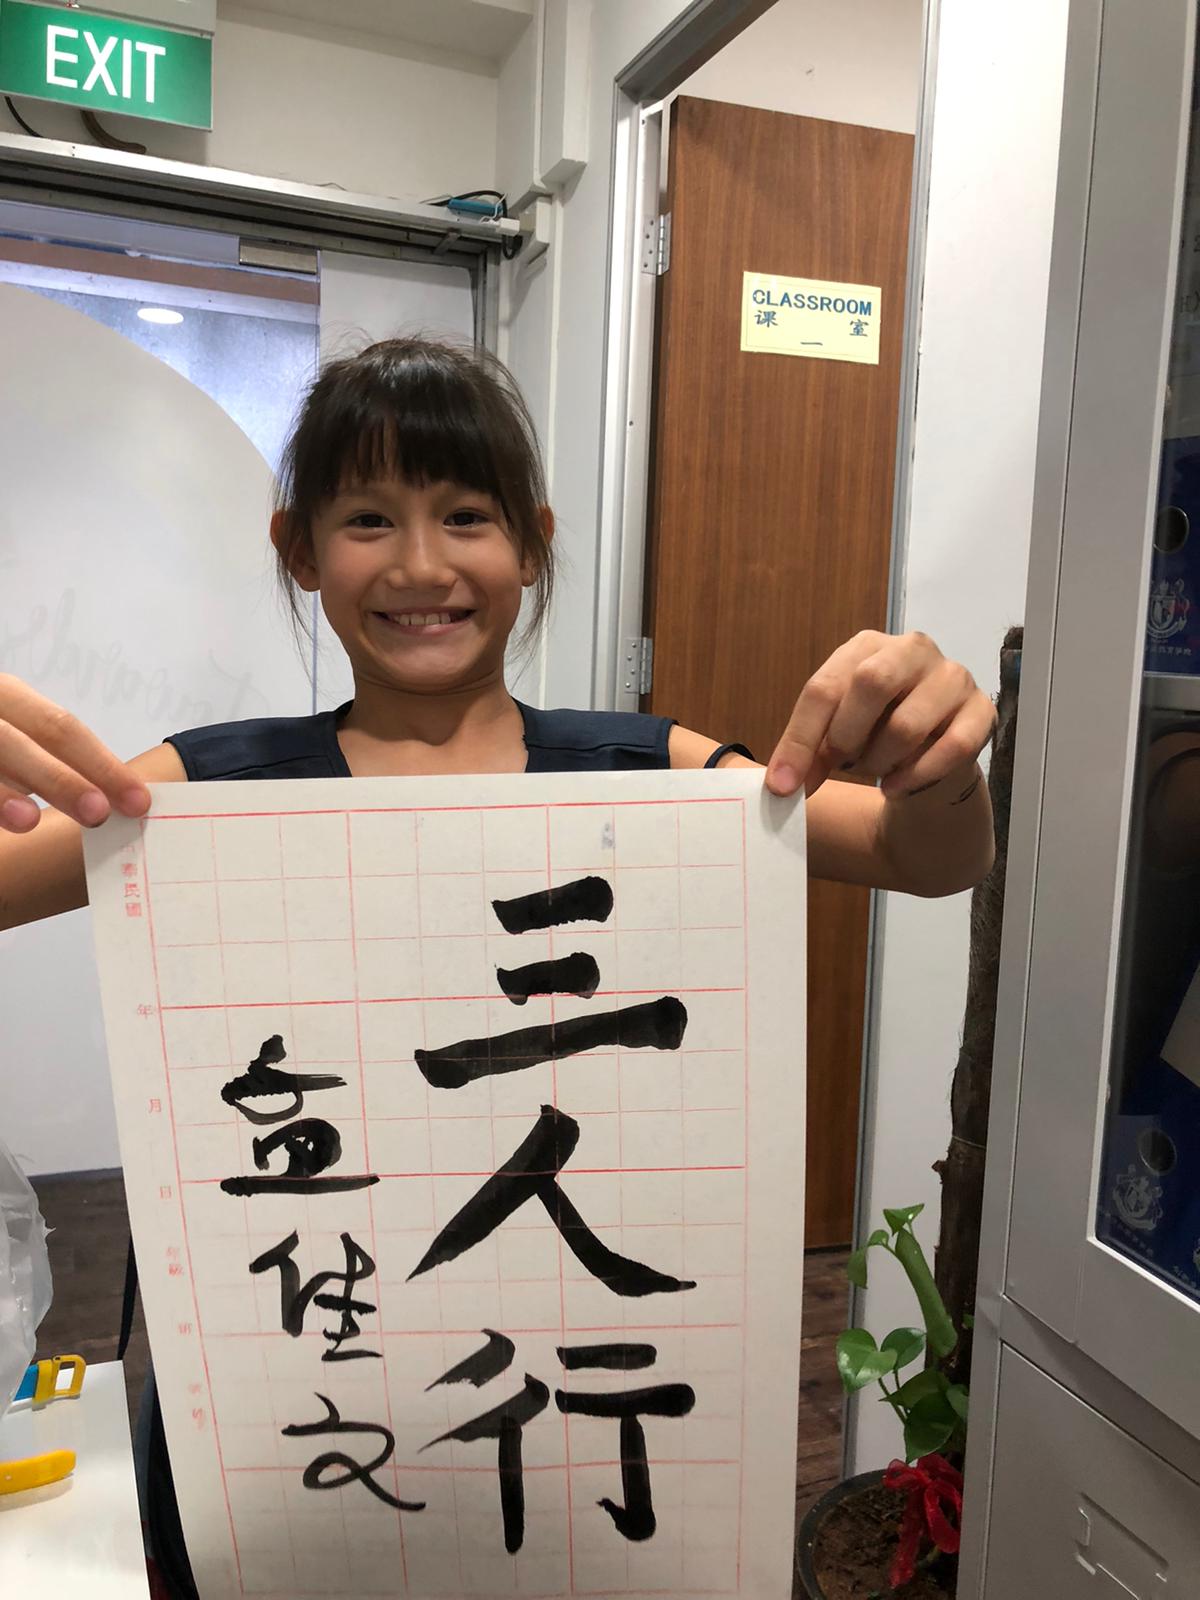 EXIT
CLASSROOM
课 室
一
三人行
孟佳文
民國
年
月
日
年級